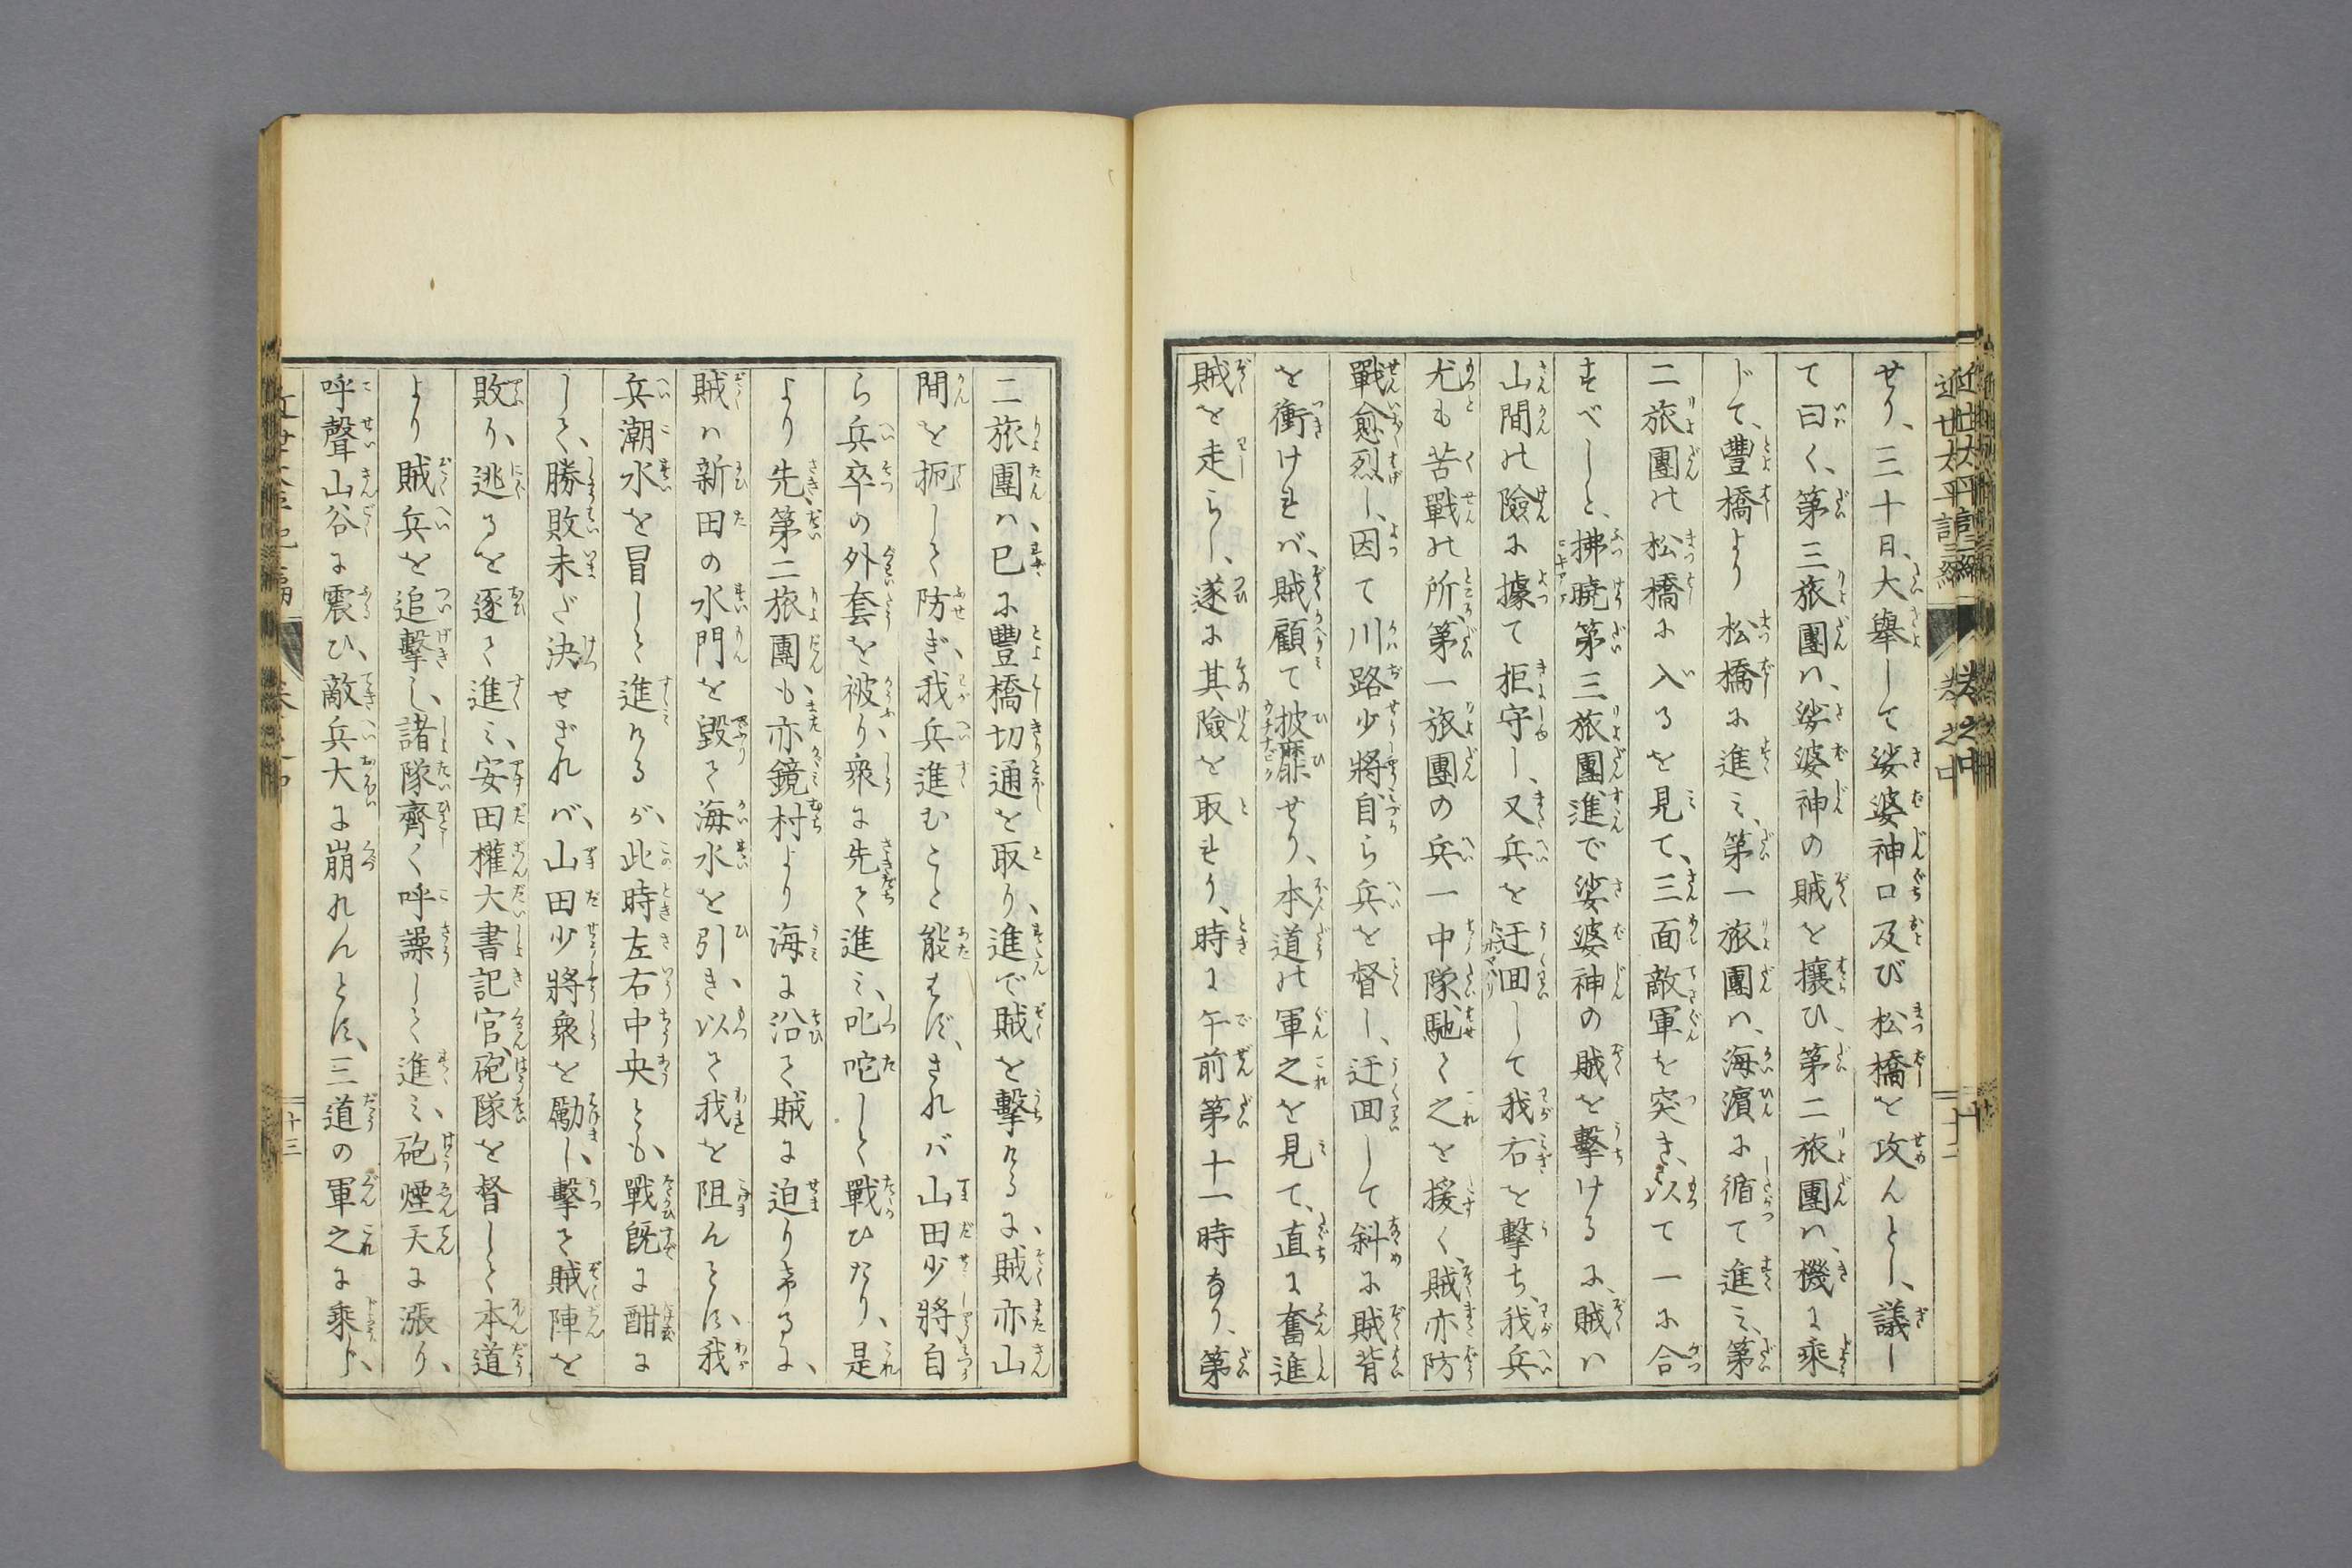 せり、三十日、大擧して娑婆神口及び松橋を攻んとし、議し
て曰く、第三旅團ハ、娑婆神の賊を攘ひ、第二旅團ハ、機に乘
じて、豐橋より松橋に進ミ、第一旅團ハ、海濵に循て進ミ、第
二旅團の松橋に入るを見て、三面敵軍を突き、以て一に合
すべしと、拂曉第三旅團、進で娑婆神の賊を擊けるに、賊ハ
山間の險に據て拒守し、又兵を迂回して我右を擊ち、我兵
尤も苦戰の所、第一旅團の兵一中隊、馳て之を援く、賊亦防
戰愈烈し、因て川路少將、自ら兵を督し、迂回して斜に賊背
を衝けれバ、賊顧て披靡せり、本道の軍之を見て、直に奮進
賊を走らし、遂に其險を取れり、時に午前第十一時なり、第
二旅團ハ、已に豐橋切通を取り、進で賊を擊けるに、賊亦山
間を扼して防ぎ、我兵進むこと能はず、されバ山田少將自
ら兵卒の外套を被り、衆に先て進ミ、叱咤して戰ひたり、是
より先、第二旅團も亦鏡村より海に沿て賊に迫りけるに、
賊ハ新田の水門を毀て海水を引き、以て我を阻んとす、我
兵潮水を冒して進けるが、此時左右中央とも、戰既に酣に
して、勝敗未だ決せざれバ、山田少將衆を勵し、擊て賊陣を
敗り、逃るを逐て進ミ、安田權大書記官、砲隊を督して本道
より賊兵を追擊し、諸隊齊く呼譟して進ミ、砲煙天に漲り、
呼聲山谷に震ひ、敵兵大に崩れんとす、三道の軍之に乘じ、
近世太平記二編
卷之中
十二
十三